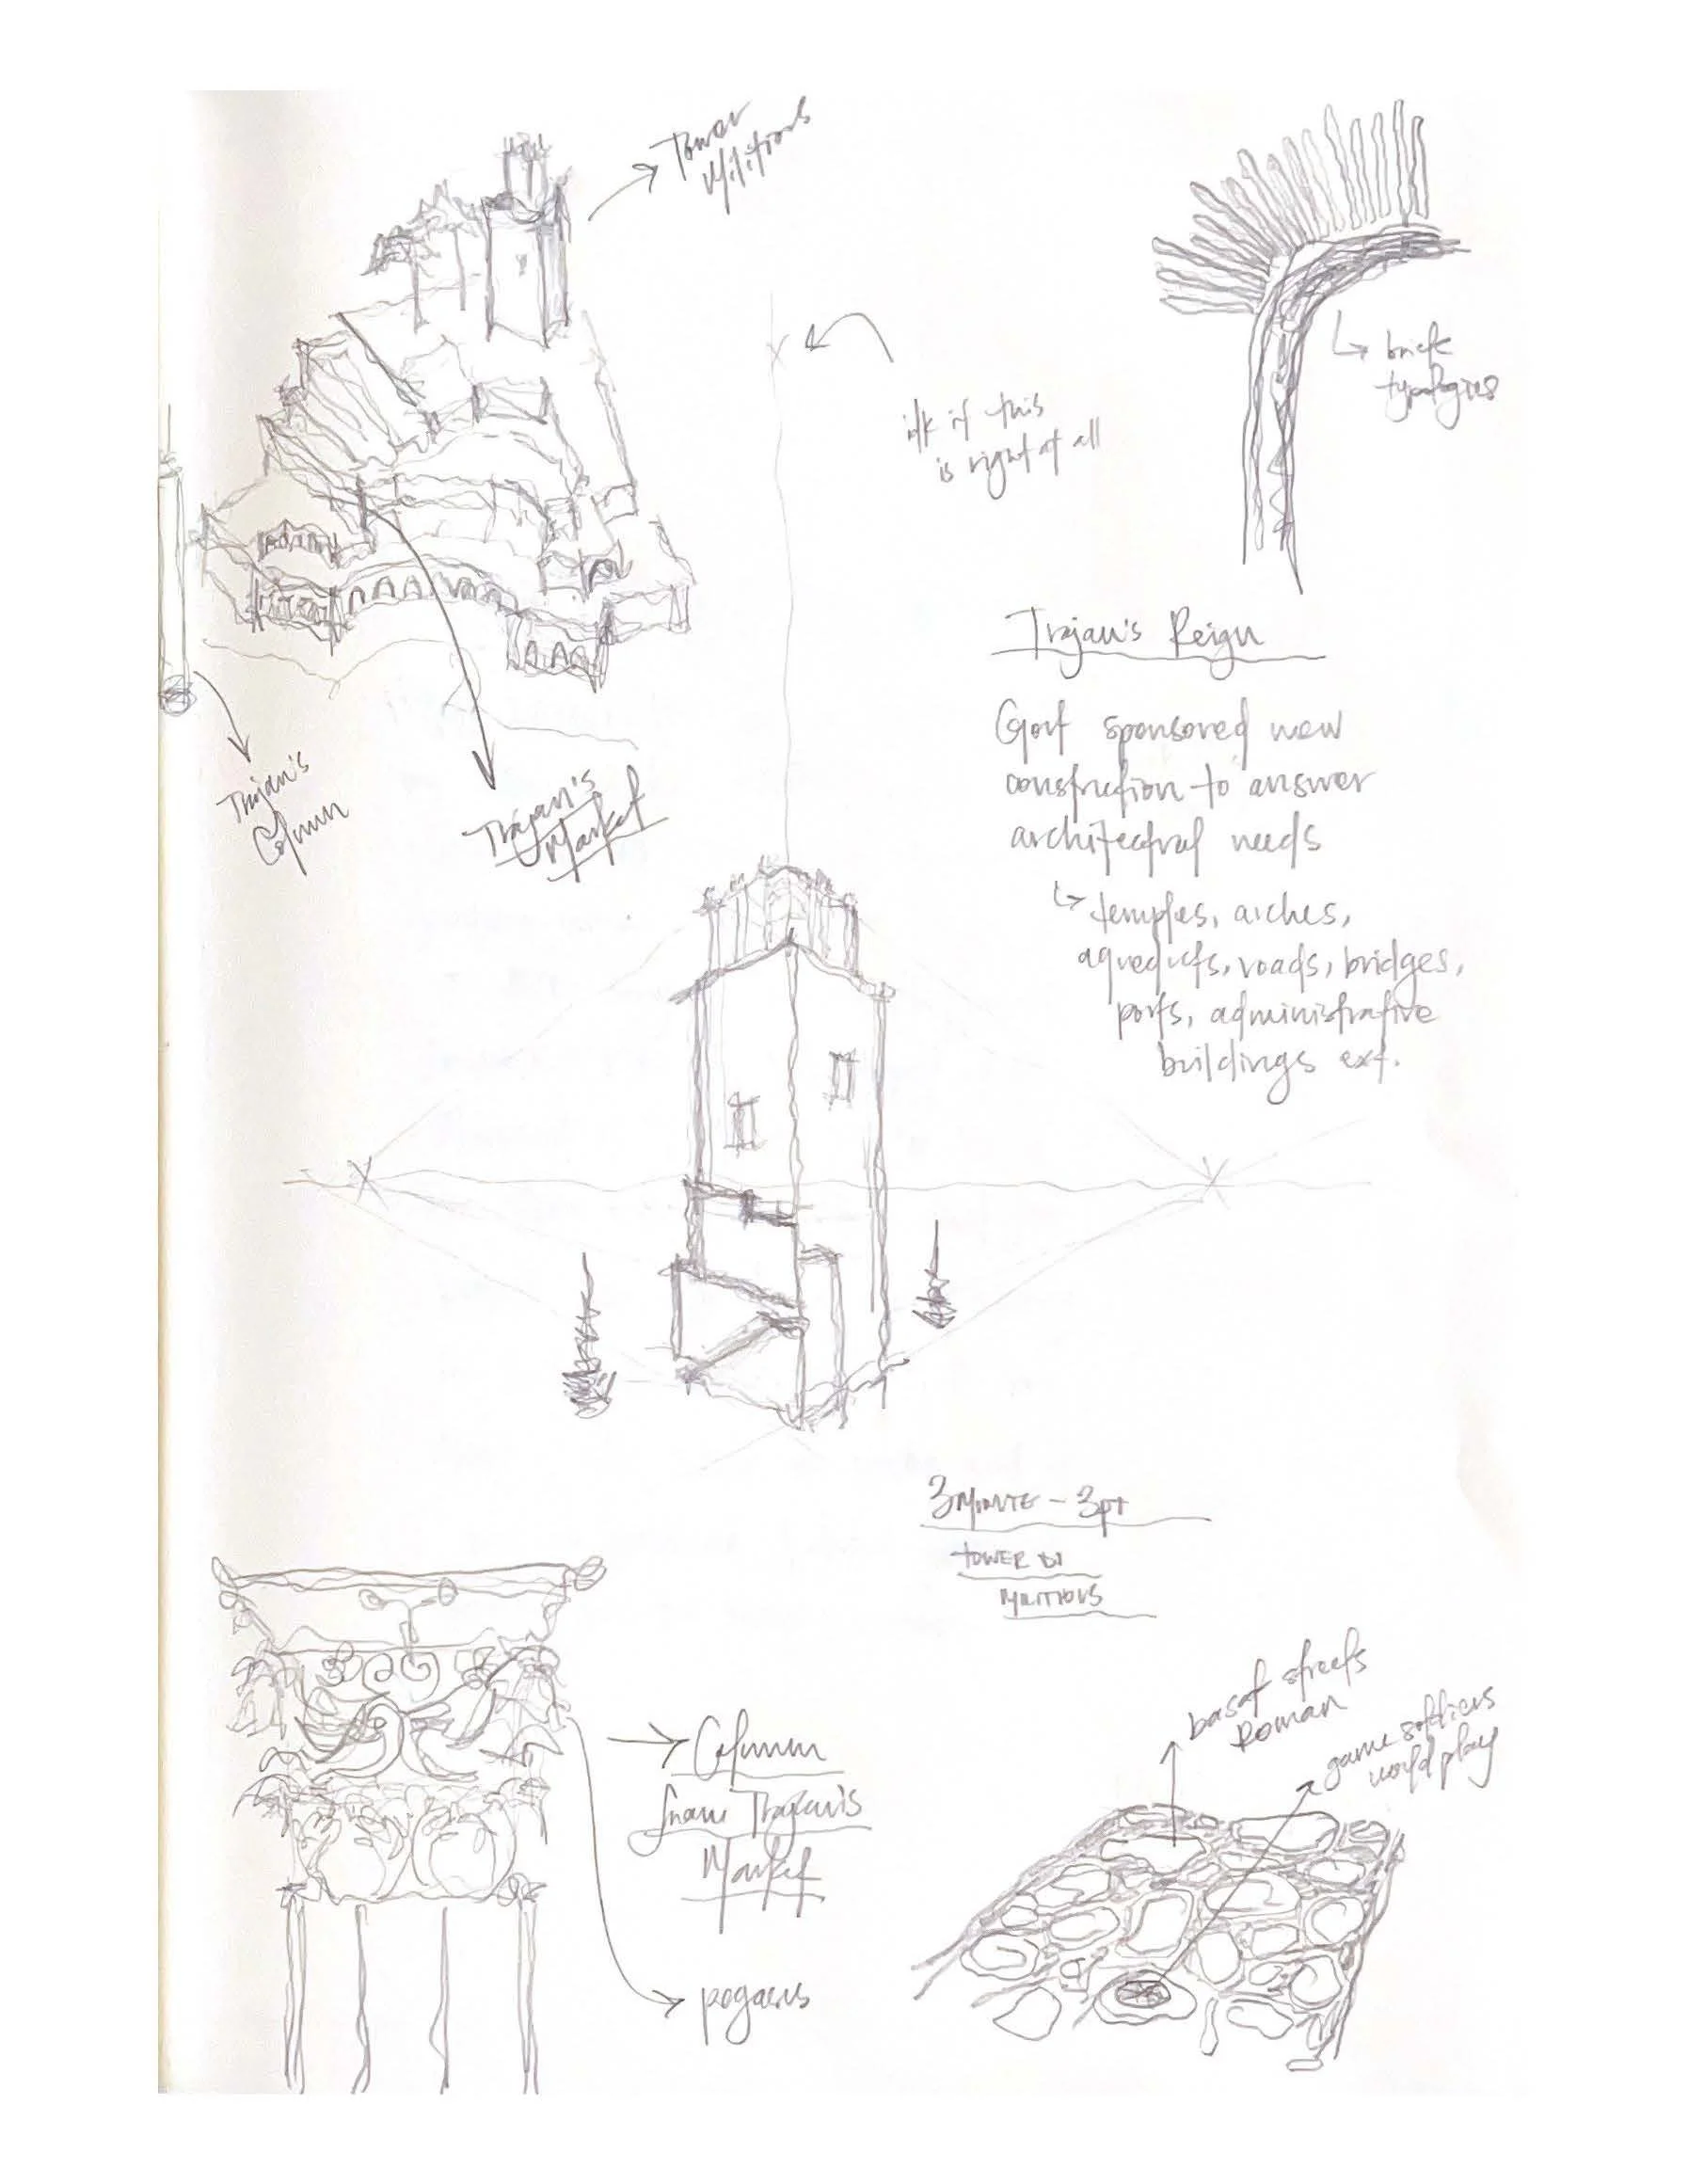 Tower
Militions
brick
typologies
idk if this
is right at all
Trajan's Reign
Govt sponsored new
constrution to answer
architectral needs
↳ temples, arches,
aqueducts, roads, bridges,
ports, administrative
buildings ext.
Trajan's
Column
Trajan's
Market
3 MINUTE - 3pt
TOWER DI
MILITIONS
basat streets
Roman
game soldiers
would play
Column
from Trajan's
Market
pegasus